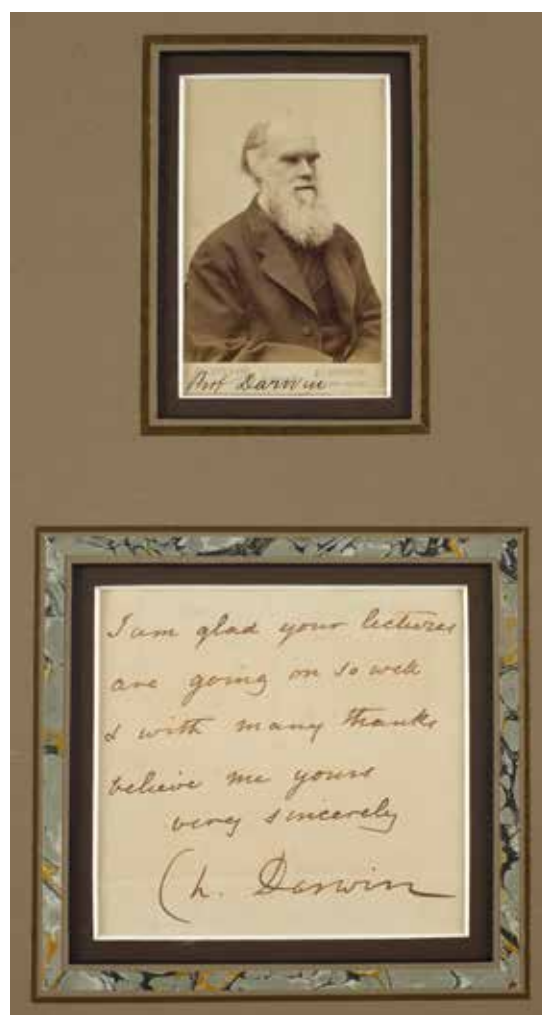 Prof Darwin
I am glad your lectures
are going on so well
& with many thanks
believe me yours
very sincerely
Ch. Darwin